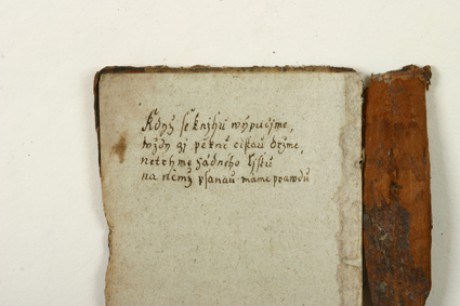 Když se knjhu wypugčjme,
wždy gj pěkně cistau držme,
netrhme žádneho ljstu
na němž psanau máme prawdu